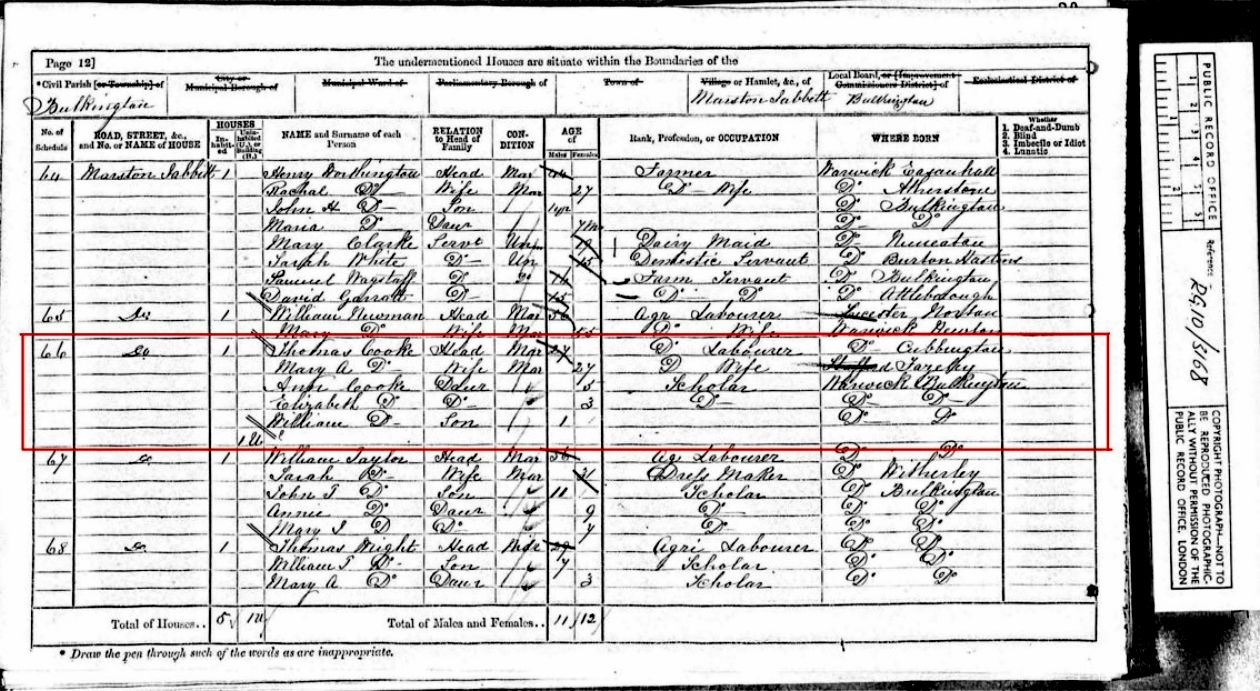 Page 12]
The undermentioned Houses are situate within the Boundaries of the
*Civil Parish [or Township] of
City or Municipal Borough of
Municipal Ward of
Parliamentary Borough of
Town of
Village or Hamlet, &c., of
Local Board, or [Improvement Commissioners District] of
Ecclesiastical District of
Bulkington
Marston Jabbett
Bulkington
No. of Schedule
ROAD, STREET, &c., and No. or NAME of HOUSE
HOUSES
Inhabited
Uninhabited (U.), or Building (B.)
NAME and Surname of each Person
RELATION to Head of Family
CONDITION
AGE of
Males
Females
Rank, Profession, or OCCUPATION
WHERE BORN
Whether
1. Deaf-and-Dumb
2. Blind
3. Imbecile or Idiot
4. Lunatic
64 Marston Jabbett 1 Henry Worthington Head Mar Farmer Warwick
Rachal Do Wife Mar 27 Do Wife Do Atherstone
John H Do Son Do Bulkington
Maria Do Daur 7m Do Do
Mary Clarke Servt Un 19 Dairy Maid Do Nuneaton
Sarah White Do Un 15 Domestic Servant Do Burton Hastins
Samuel Wagstaff Do Do 14 Farm Servant Do Bulkington
David Garratt Do 15 Do Do Do Attleborough
65 Do 1 William Newman Head Mar 56 Agr Labourer Norton
Mary Do Wife Mar 55 Do Wife Warwick
66 Do 1 Thomas Cooke Head Mar 27 Do Labourer Do Cubbington
Mary A Do Wife Mar 27 Do Wife Stafford Fazeley
Ann Cooke Daur 5 Scholar Warwick Bulkington
Elizabeth Do Do 3 Do Do Do
William Do Son 1 Do Do
1 U
67 Do 1 William Taylor Head Mar 36 Ag Labourer Do Do
Sarah Do Wife Mar 31 Dress Maker Do Witherley
John Do Son 11 Scholar Do Bulkington
Annie Do Daur 9 Do Do Do
Mary Do Do 7 Do Do Do
68 Do 1 Thomas Wright Head Agri Labourer Do Do
William Do Son 7 Scholar Do Do
Mary A Do Daur 3 Scholar Do Do
Total of Houses.. 5 1U
Total of Males and Females.. 11 12
* Draw the pen through such of the words as are inappropriate.
PUBLIC RECORD OFFICE
Reference
RG10/3168
COPYRIGHT PHOTOGRAPH—NOT TO BE REPRODUCED PHOTOGRAPHICALLY WITHOUT PERMISSION OF THE PUBLIC RECORD OFFICE, LONDON